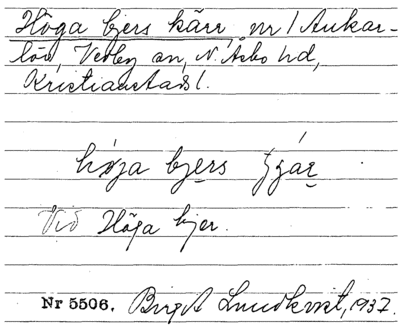 Höga bjers kärr, nr 1 Ankar-
löv, Vedby sn, N. Åsbo hd,
Kristianstads l.
höga bjers
Vid Höga bjer.
Nr 5506. Birgit Lundkvist, 1937.